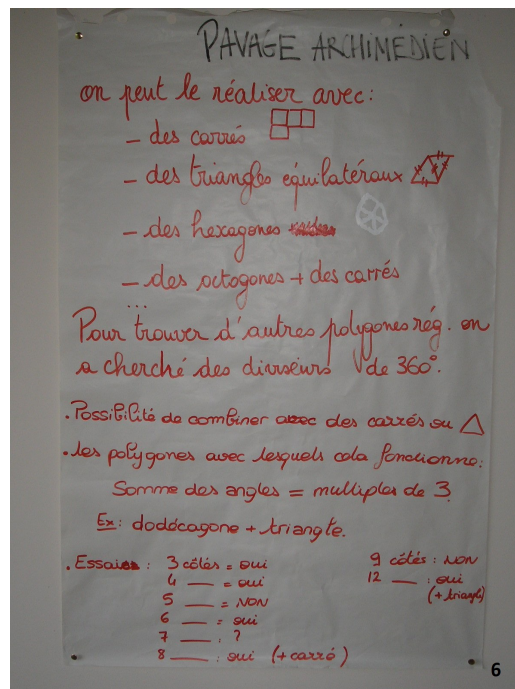 PAVAGE ARCHIMÉDIEN
on peut le réaliser avec :
- des carrés
- des triangles équilatéraux
- des hexagones
- des octogones + des carrés
...
Pour trouver d'autres polygones rég. on
a cherché des diviseurs de 360°.
. Possibilité de combiner avec des carrés ou
. les polygones avec lesquels cela fonctionne :
Somme des angles = multiples de 3.
Ex : dodécagone + triangle.
. Essais : 3 côtés = oui
4 ___ = oui
5 ___ = NON
6 ___ = oui
7 ___ : ?
8 ___ : oui (+ carré)
9 côtés : NON
12 ___ : oui
(+ triangle)
6